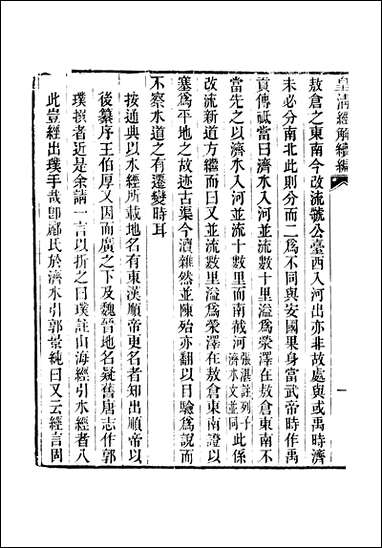 皇清經解續編
一
敖倉之東南今改流虢公臺西入河出亦非故處與或禹時濟
未必分南北此則分而二爲不同與安國果身當武帝時作禹
貢傳祗當曰濟水入河並流數十里溢爲滎澤在敖倉東南不
當先之以濟水入河並流十數里而南截河張湛註列子濟水文並同此係
改流新道方繼而曰又並流數里溢爲滎澤在敖倉東南證以
塞爲平地之故迹古渠今瀆雜然並陳殆亦翻以目驗爲說而
不察水道之有遷變時耳
按通典以水經所載地名有東漢順帝更名者知出順帝以
後纂序王伯厚又因而廣之下及魏晉地名疑舊唐志作郭
璞撰者近是余請一言以折之曰璞註山海經引水經者八
此豈經出璞手哉卽酈氏於濟水引郭景純曰又云經言固